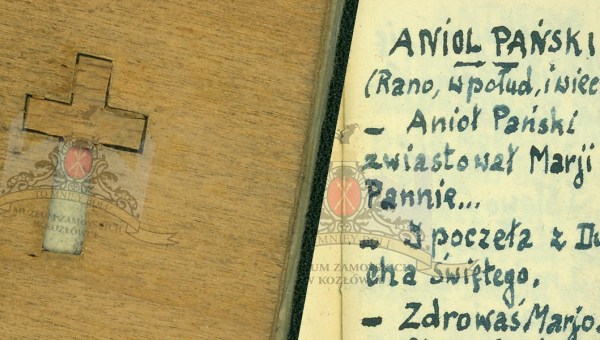 ANIOL PAŃSKI
(Rano, w połud, i wiec
– Anioł Pański
zwiastował Marji
Pannie...
– I poczęła z Du
cha Świętego.
– Zdrowaś Marjo.
MUZEUM ZAMOYSKICH
W KOZŁÓWCE
UM ZAMOY
W KOZŁÓW